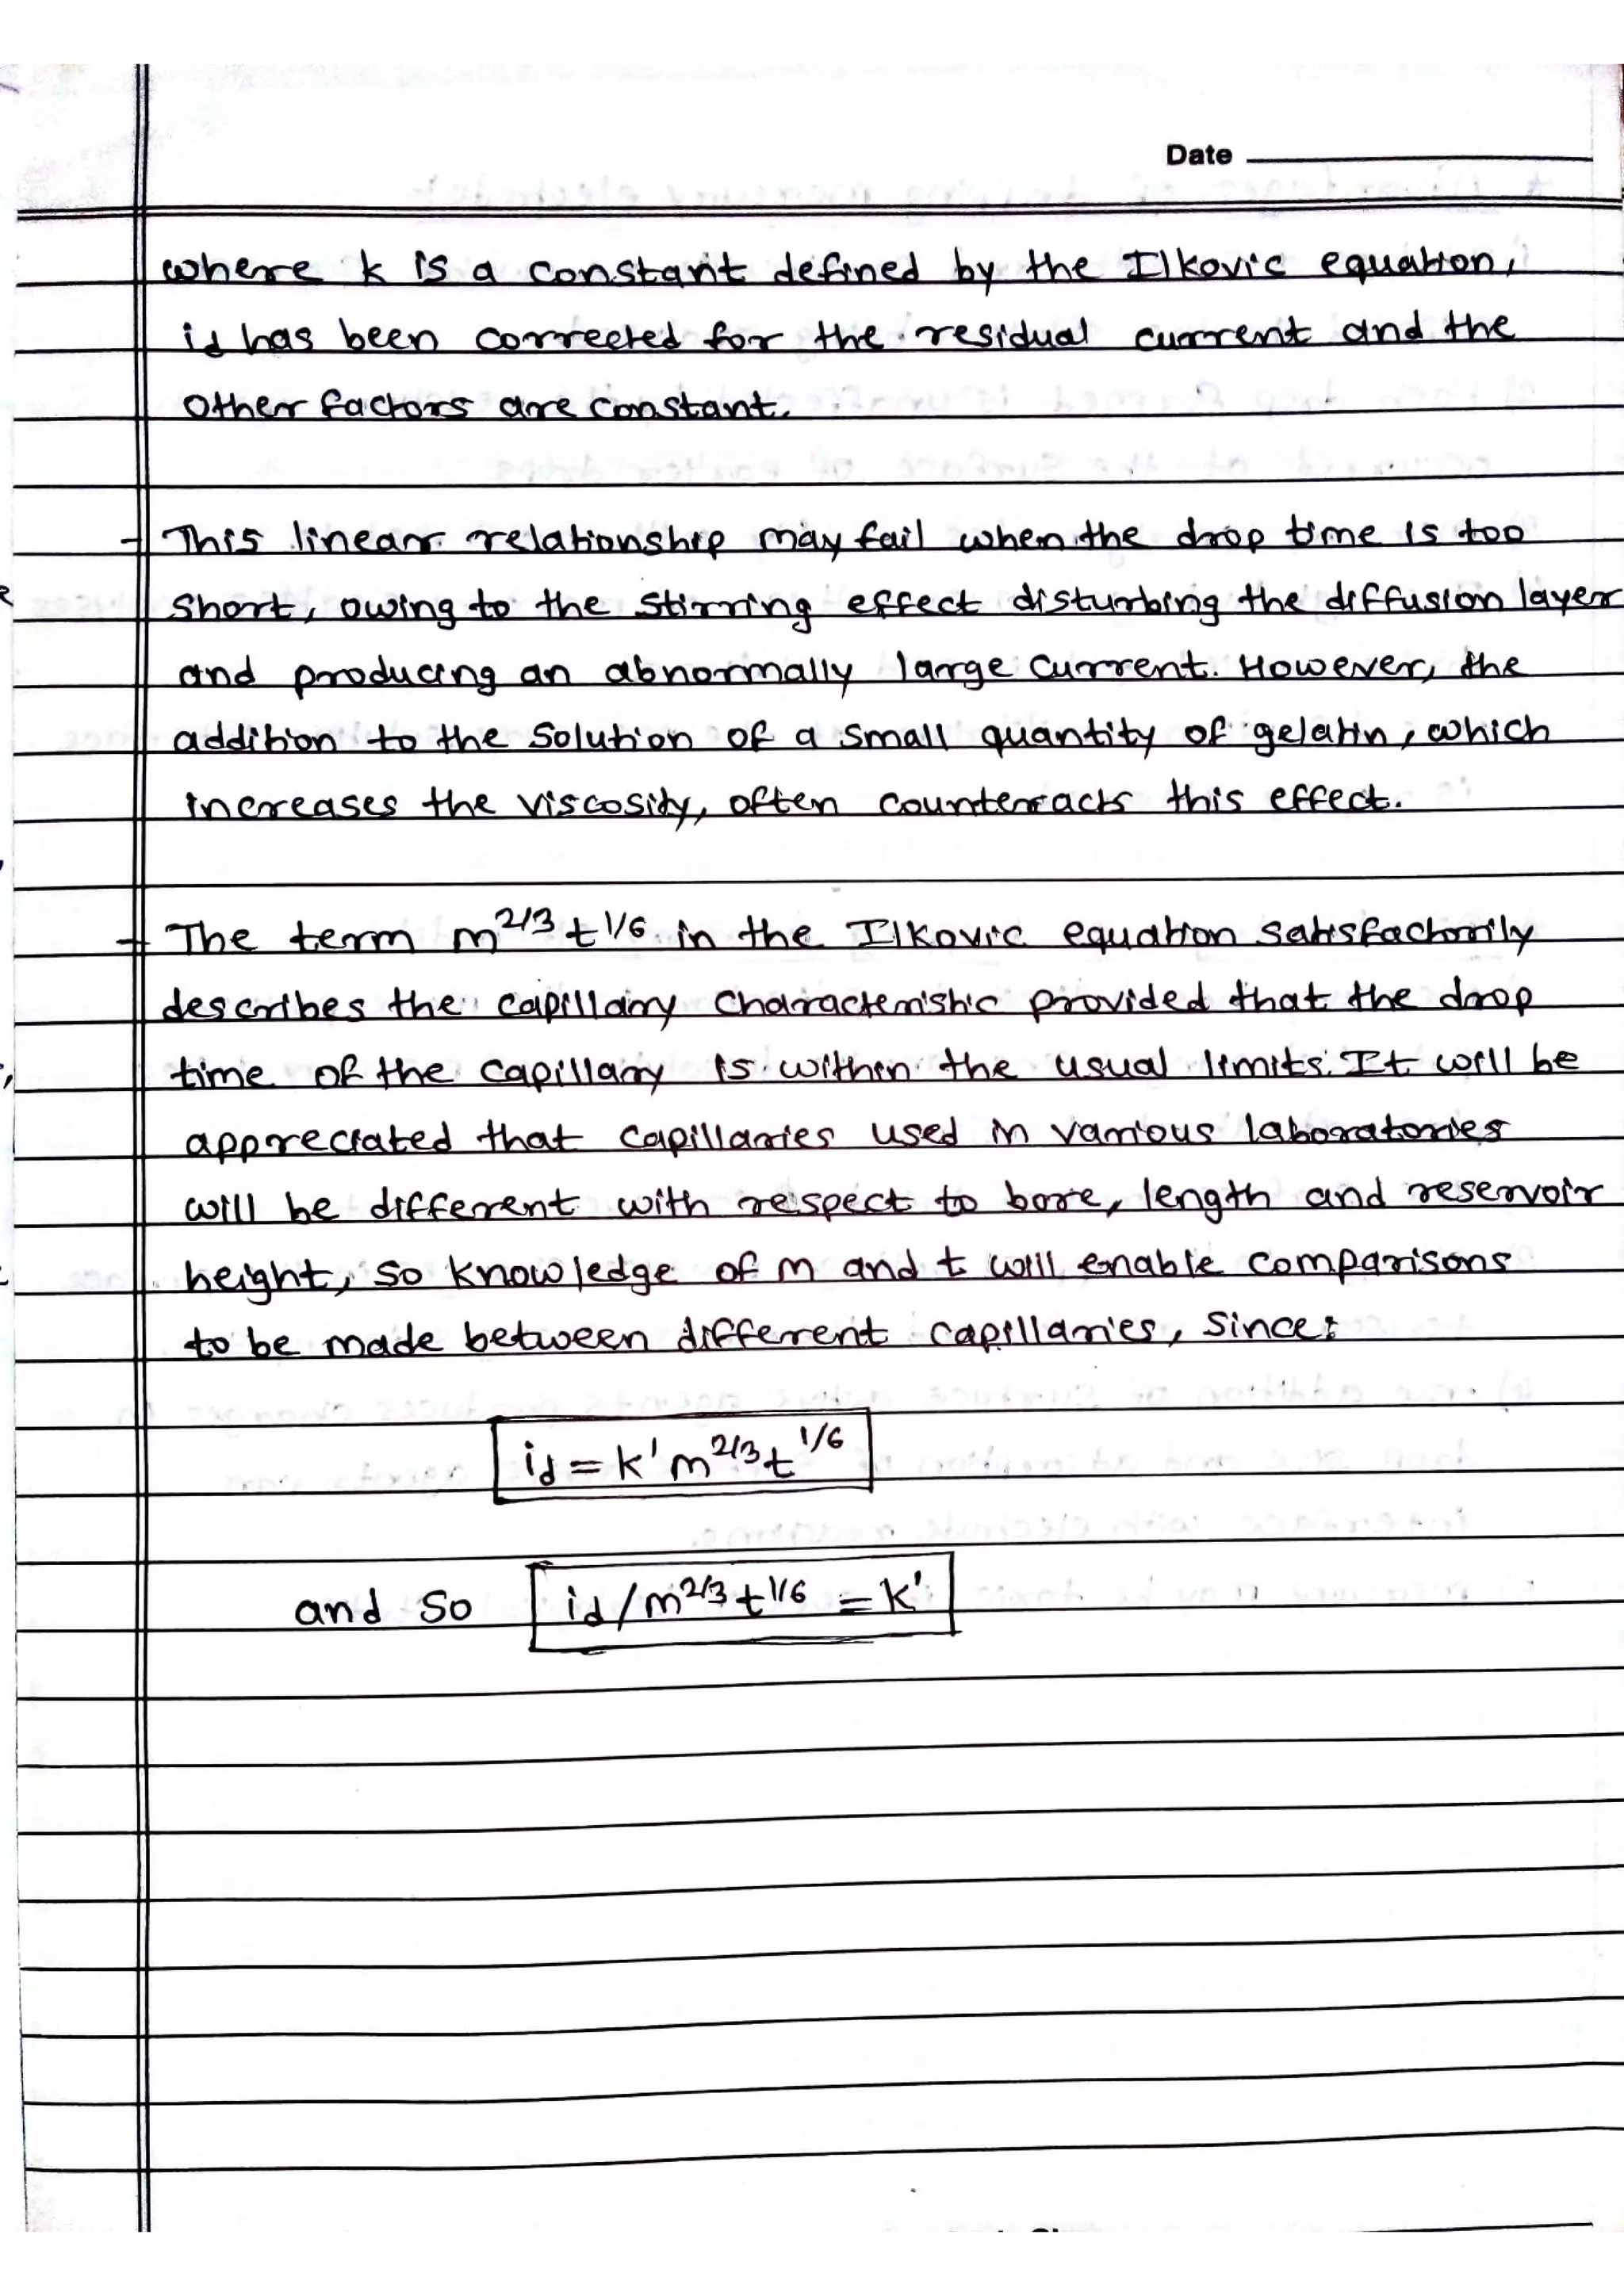 Date
where k is a constant defined by the Ilkovic equation,
id has been corrected for the residual current and the
other factors are constant.
- This linear relationship may fail when the drop time is too
short, owing to the stirring effect disturbing the diffusion layer
and producing an abnormally large current. However, the
addition to the solution of a small quantity of gelatin, which
increases the viscosity, often counteracts this effect.
- The term m^2/3 t^1/6 in the Ilkovic equation satisfactorily
describes the capillary characteristic provided that the drop
time of the capillary is within the usual limits. It will be
appreciated that capillaries used in various laboratories
will be different with respect to bore, length and reservoir
height, so knowledge of m and t will enable comparisons
to be made between different capillaries, since:
id = k' m^2/3 t^1/6
and so id / m^2/3 t^1/6 = k'